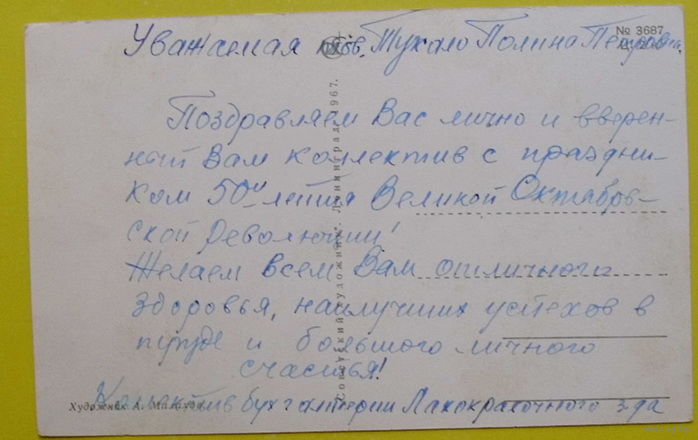 Уважаемая тов. Тукало Полина Петровна
№ 3687
Поздравляем Вас лично и вверен-
ный Вам коллектив с праздни-
ком 50и летия Великой Октябрь-
ской Революции!
Желаем всем Вам отличного
здоровья, наилучших успехов в
труде и большого личного
счастья!
Коллектив бухгалтерии Лакокрасочного з-да
Художник А.
Советский художник. Ленинград. 1967.